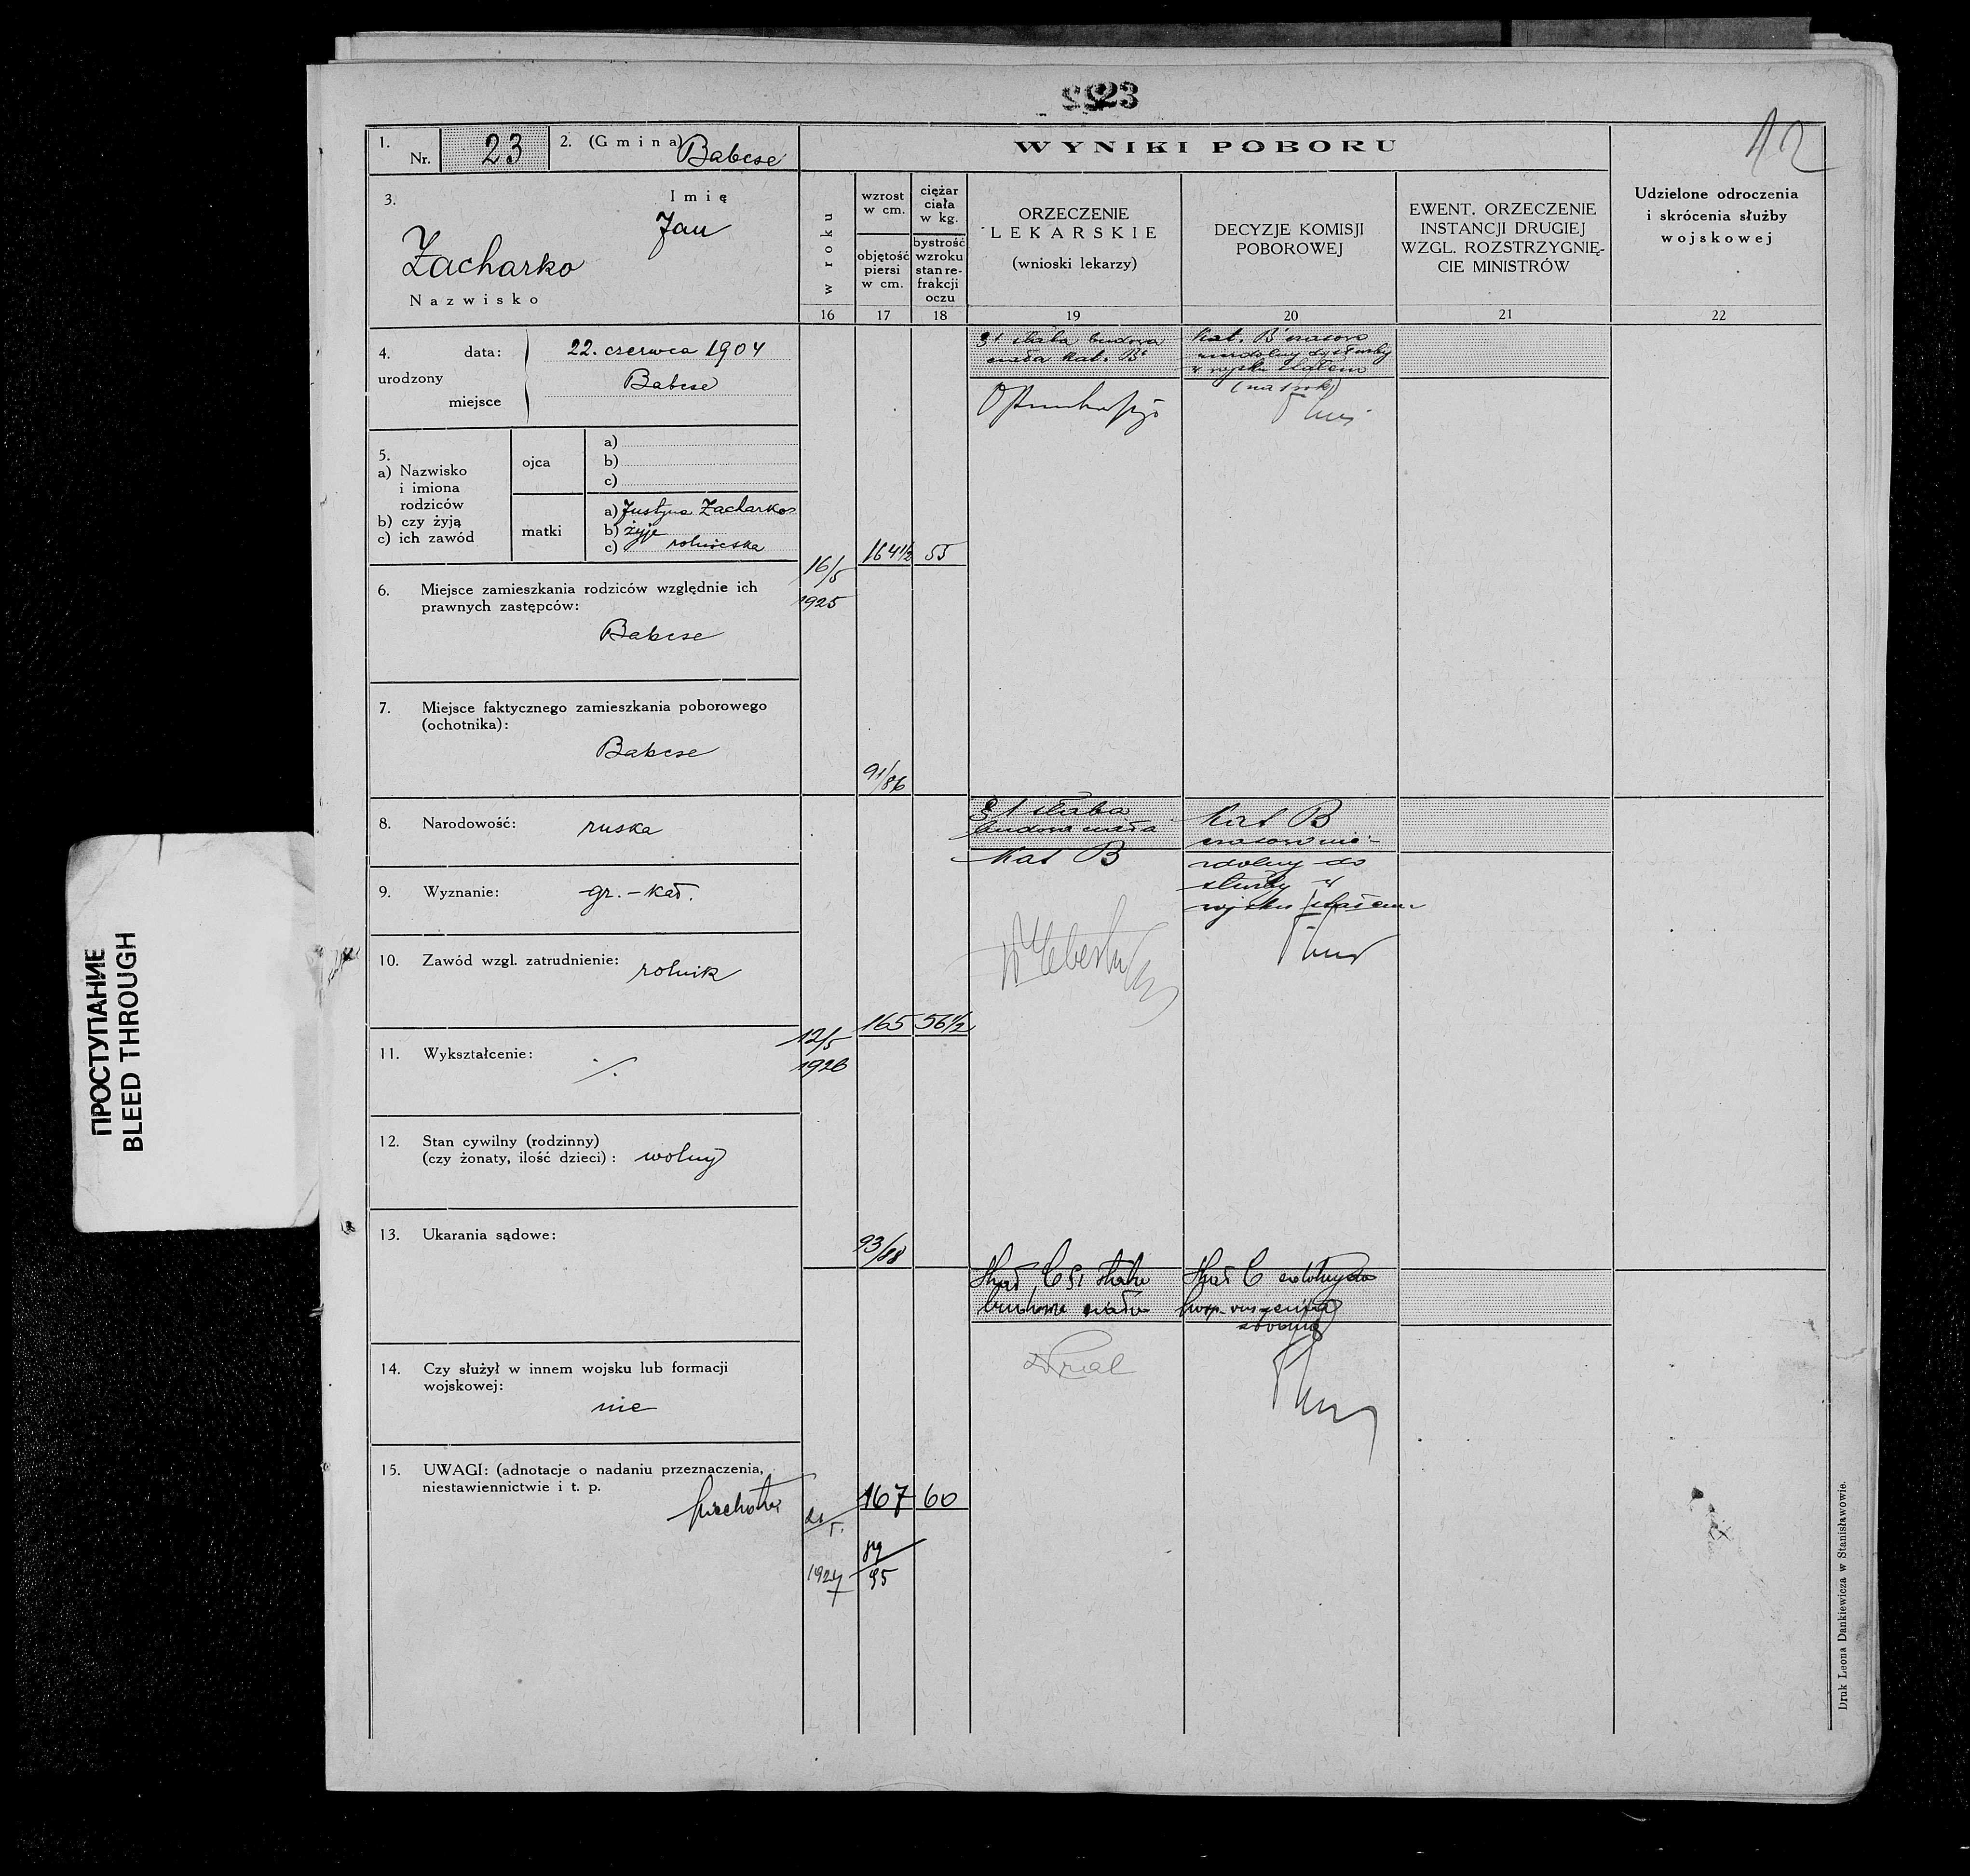 23
12
1.
Nr. 23
2. (Gmina) Babcse
3.
Imię
Jan
Zacharko
Nazwisko
4.
urodzony
data: 22. czerwca 1904
miejsce Babcse
5.
a) Nazwisko
i imiona
rodziców
b) czy żyją
c) ich zawód
ojca
a)
b)
c)
matki
a) Justyna Zacharko
b) żyje
c) rolniczka
6. Miejsce zamieszkania rodziców względnie ich
prawnych zastępców:
Babcse
7. Miejsce faktycznego zamieszkania poborowego
(ochotnika):
Babcse
8. Narodowość: ruska
9. Wyznanie: gr.-kat.
10. Zawód wzgl. zatrudnienie: rolnik
11. Wykształcenie:
./.
12. Stan cywilny (rodzinny)
(czy żonaty, ilość dzieci): wolny
13. Ukarania sądowe:
14. Czy służył w innem wojsku lub formacji
wojskowej:
nie
15. UWAGI: (adnotacje o nadaniu przeznaczenia,
niestawiennictwie i t. p.
piechota
WYNIKI POBORU
w roku
16
wzrost
w cm.
objętość
piersi
w cm.
17
ciężar
ciała
w kg.
bystrość
wzroku
stan re-
frakcji
oczu
18
ORZECZENIE
LEKARSKIE
(wnioski lekarzy)
19
DECYZJE KOMISJI
POBOROWEJ
20
EWENT. ORZECZENIE
INSTANCJI DRUGIEJ
WZGL. ROZSTRZYGNIĘ-
CIE MINISTRÓW
21
Udzielone odroczenia
i skrócenia służby
wojskowej
22
16/5
1925
164 1/2
55
91/86
§1 słaba budowa
ciała Kat. B
Kat. B czasowo
niezdolny do służby
w wojsku stałem
(na 1 rok)
12/5
1926
165
56 1/2
93/88
§1 słaba
budowa ciała
Kat B
Kat B
czasowo nie-
zdolny do
służby w
wojsku stałem
21/5.
1927
167
60
89
95
C §1 słaba
budowa ciała
C zdolny do
posp. ruszenia
z bronią
Druk Leona Dankiewicza w Stanisławowie.
ПРОСТУПАНИЕ
BLEED THROUGH